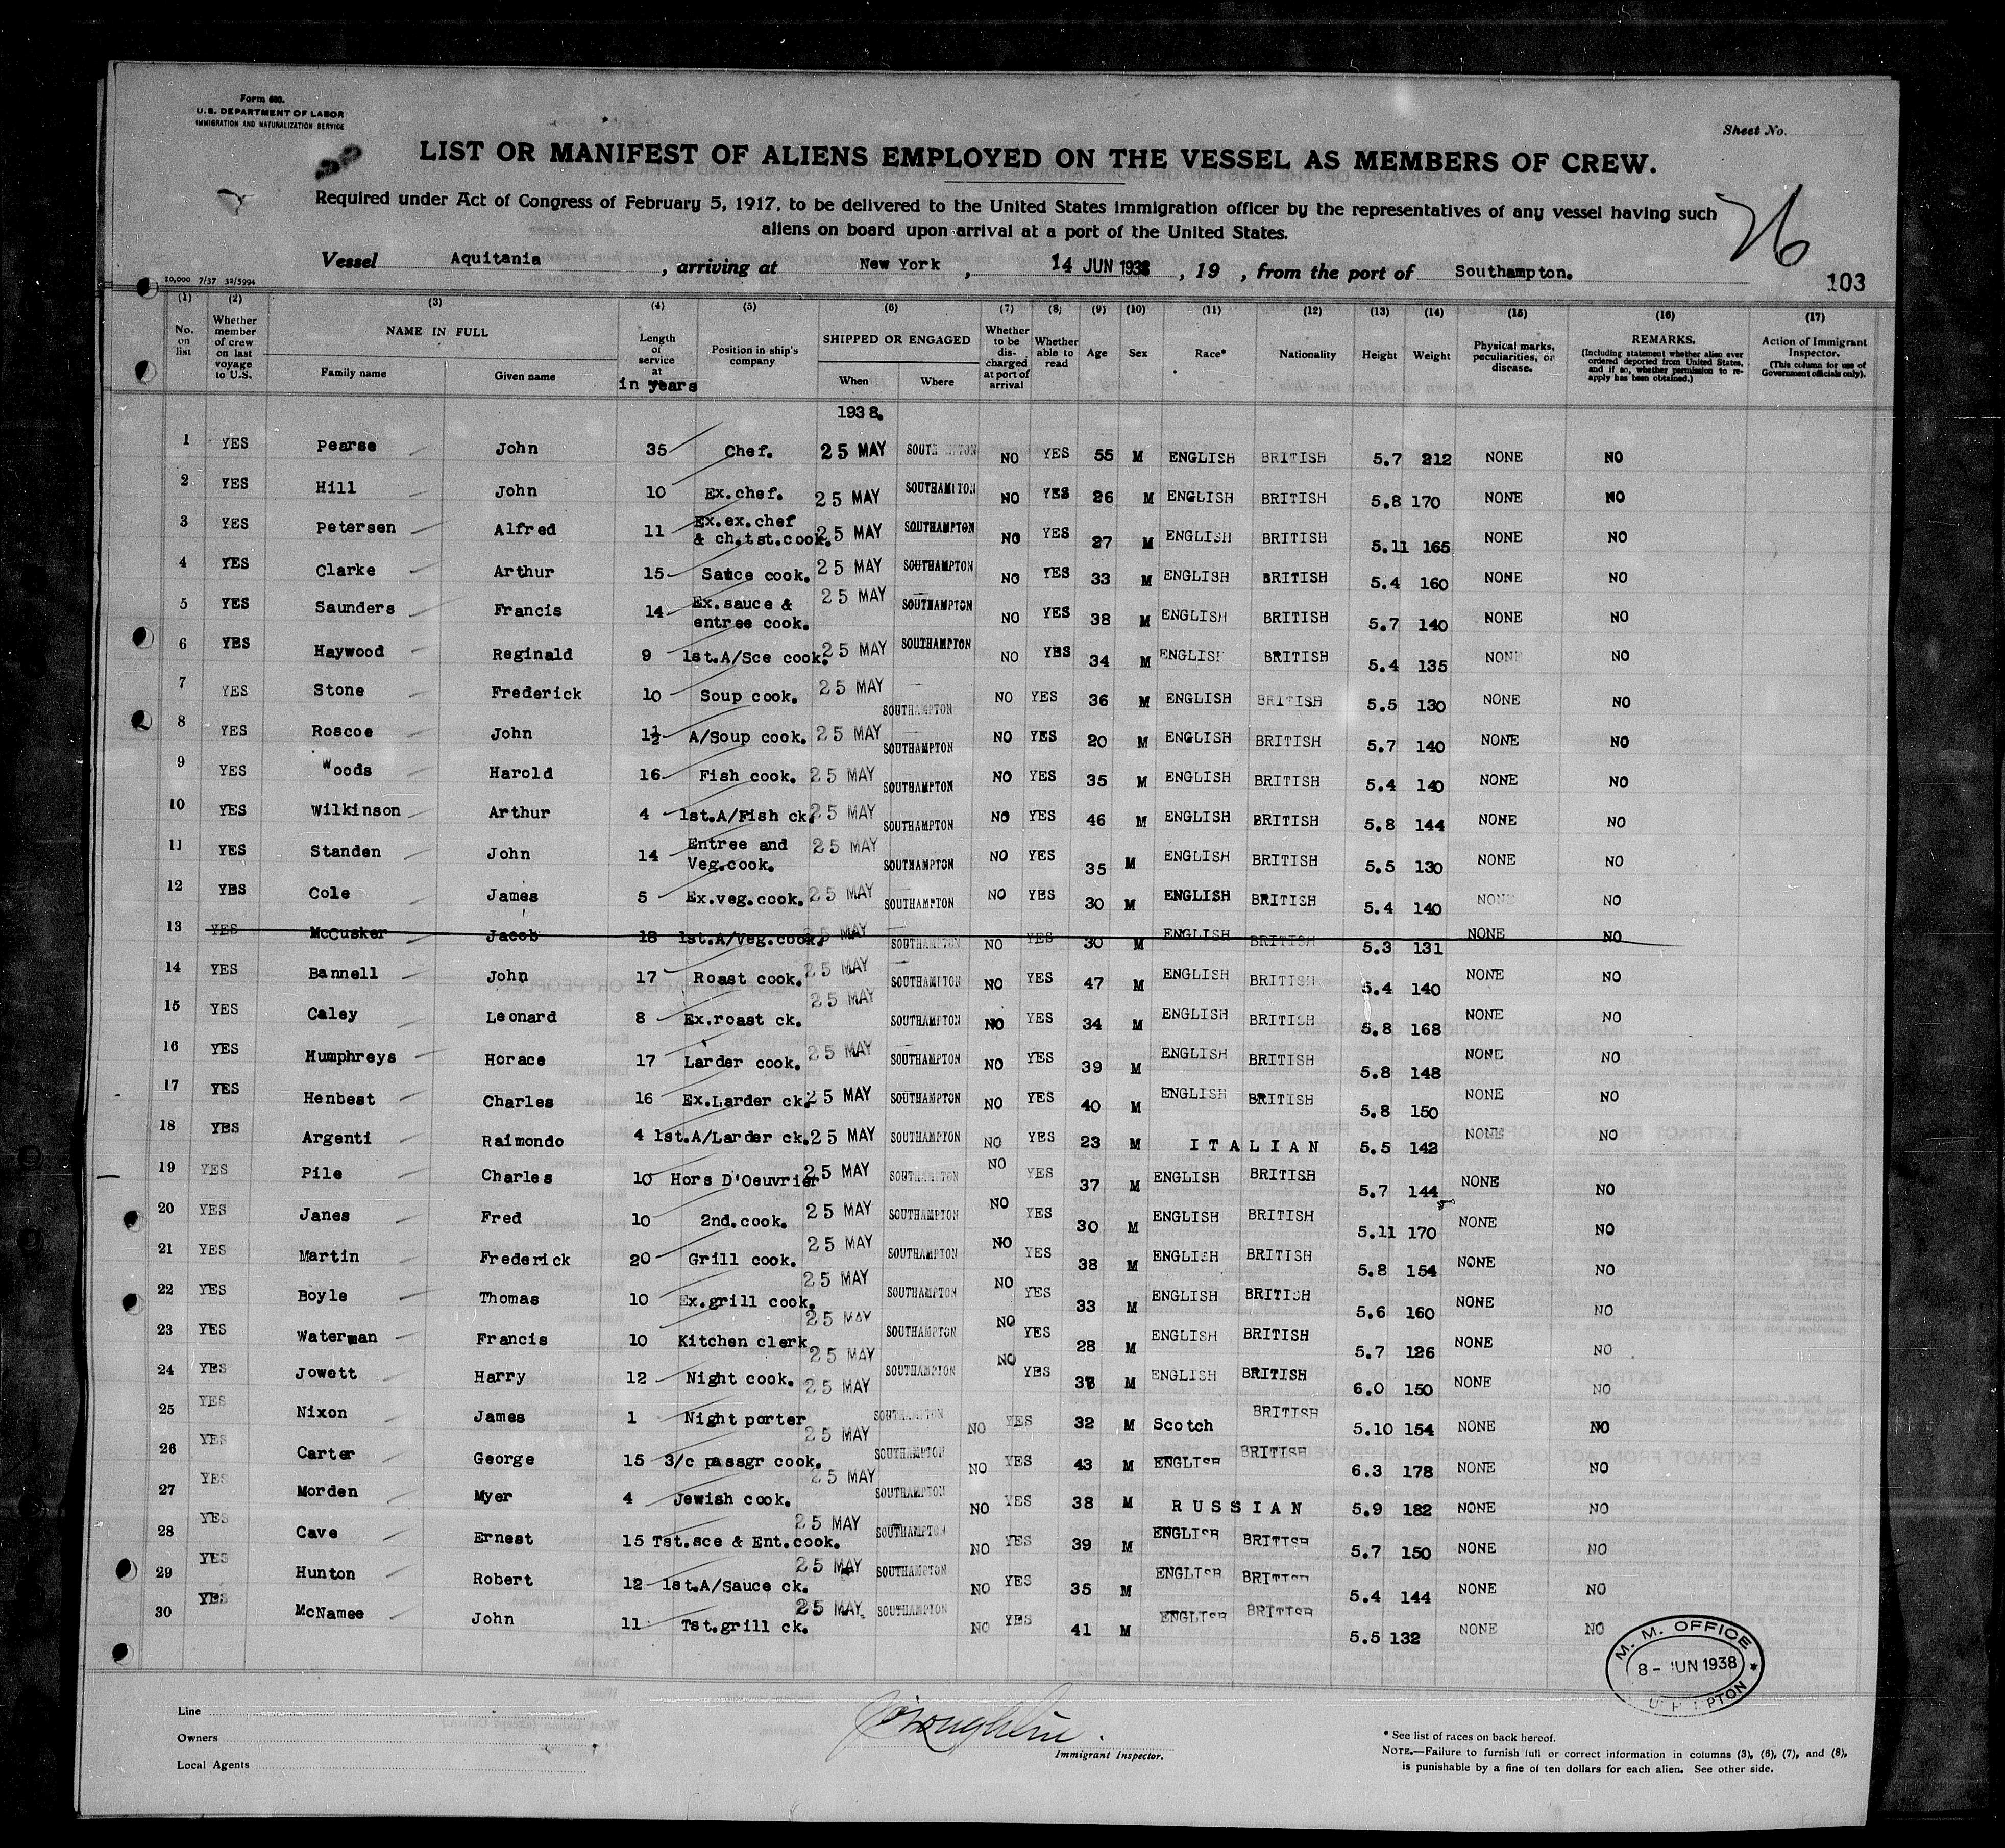 Form 680.
U.S. DEPARTMENT OF LABOR
IMMIGRATION AND NATURALIZATION SERVICE
Sheet No.
LIST OR MANIFEST OF ALIENS EMPLOYED ON THE VESSEL AS MEMBERS OF CREW.
Required under Act of Congress of February 5, 1917, to be delivered to the United States immigration officer by the representatives of any vessel having such
aliens on board upon arrival at a port of the United States.
76
Vessel Aquitania, arriving at New York, 14 JUN 1938, 19 , from the port of Southampton.
10,000 7/37 32/5994
103
(1) (2) (3) (4) (5) (6) (7) (8) (9) (10) (11) (12) (13) (14) (15) (16) (17)
No. on list
Whether member of crew on last voyage to U.S.
NAME IN FULL
Family name Given name
Length of service at in years
Position in ship's company
SHIPPED OR ENGAGED
When Where
Whether to be discharged at port of arrival
Whether able to read
Age
Sex
Race*
Nationality
Height
Weight
Physical marks, peculiarities, or disease.
REMARKS.
(Including statement whether alien ever ordered deported from United States, and if so, whether permission to re-apply has been obtained.)
Action of Immigrant Inspector.
(This column for use of Government officials only).
1938.
1 YES Pearse John 35 Chef. 25 MAY SOUTHAMPTON NO YES 55 M ENGLISH BRITISH 5.7 212 NONE NO
2 YES Hill John 10 Ex.chef. 25 MAY SOUTHAMPTON NO YES 26 M ENGLISH BRITISH 5.8 170 NONE NO
3 YES Petersen Alfred 11 Ex.ex.chef & ch.tst.cook. 25 MAY SOUTHAMPTON NO YES 27 M ENGLISH BRITISH 5.11 165 NONE NO
4 YES Clarke Arthur 15 Sauce cook. 25 MAY SOUTHAMPTON NO YES 33 M ENGLISH BRITISH 5.4 160 NONE NO
5 YES Saunders Francis 14 Ex.sauce & entree cook. 25 MAY SOUTHAMPTON NO YES 38 M ENGLISH BRITISH 5.7 140 NONE NO
6 YES Haywood Reginald 9 1st.A/Sce cook. 25 MAY SOUTHAMPTON NO YES 34 M ENGLISH BRITISH 5.4 135 NONE NO
7 YES Stone Frederick 10 Soup cook. 25 MAY SOUTHAMPTON NO YES 36 M ENGLISH BRITISH 5.5 130 NONE NO
8 YES Roscoe John 1½ A/Soup cook. 25 MAY SOUTHAMPTON NO YES 20 M ENGLISH BRITISH 5.7 140 NONE NO
9 YES Woods Harold 16 Fish cook. 25 MAY SOUTHAMPTON NO YES 35 M ENGLISH BRITISH 5.4 140 NONE NO
10 YES Wilkinson Arthur 4 1st.A/Fish ck. 25 MAY SOUTHAMPTON NO YES 46 M ENGLISH BRITISH 5.8 144 NONE NO
11 YES Standen John 14 Entree and Veg.cook. 25 MAY SOUTHAMPTON NO YES 35 M ENGLISH BRITISH 5.5 130 NONE NO
12 YES Cole James 5 Ex.veg.cook. 25 MAY SOUTHAMPTON NO YES 30 M ENGLISH BRITISH 5.4 140 NONE NO
13 YES McCusker Jacob 18 1st.A/Veg.cook. 25 MAY SOUTHAMPTON NO YES 30 M ENGLISH BRITISH 5.3 131 NONE NO
14 YES Bannell John 17 Roast cook. 25 MAY SOUTHAMPTON NO YES 47 M ENGLISH BRITISH 5.4 140 NONE NO
15 YES Caley Leonard 8 Ex.roast ck. 25 MAY SOUTHAMPTON NO YES 34 M ENGLISH BRITISH 5.8 168 NONE NO
16 YES Humphreys Horace 17 Larder cook. 25 MAY SOUTHAMPTON NO YES 39 M ENGLISH BRITISH 5.8 148 NONE NO
17 YES Henbest Charles 16 Ex.Larder ck. 25 MAY SOUTHAMPTON NO YES 40 M ENGLISH BRITISH 5.8 150 NONE NO
18 YES Argenti Raimondo 4 1st.A/Larder ck. 25 MAY SOUTHAMPTON NO YES 23 M ITALIAN 5.5 142 NONE NO
19 YES Pile Charles 10 Hors D'Oeuvrier 25 MAY SOUTHAMPTON NO YES 37 M ENGLISH BRITISH 5.7 144 NONE NO
20 YES Janes Fred 10 2nd.cook. 25 MAY SOUTHAMPTON NO YES 30 M ENGLISH BRITISH 5.11 170 NONE NO
21 YES Martin Frederick 20 Grill cook. 25 MAY SOUTHAMPTON NO YES 38 M ENGLISH BRITISH 5.8 154 NONE NO
22 YES Boyle Thomas 10 Ex.grill cook. 25 MAY SOUTHAMPTON NO YES 33 M ENGLISH BRITISH 5.6 160 NONE NO
23 YES Waterman Francis 10 Kitchen clerk 25 MAY SOUTHAMPTON NO YES 28 M ENGLISH BRITISH 5.7 126 NONE NO
24 YES Jowett Harry 12 Night cook. 25 MAY SOUTHAMPTON NO YES M ENGLISH BRITISH 6.0 150 NONE NO
25 YES Nixon James 1 Night porter 25 MAY SOUTHAMPTON NO YES 32 M Scotch BRITISH 5.10 154 NONE NO
26 YES Carter George 15 3/c passgr cook. 25 MAY SOUTHAMPTON NO YES 43 M ENGLISH BRITISH 6.3 178 NONE NO
27 YES Morden Myer 4 Jewish cook. 25 MAY SOUTHAMPTON NO YES 38 M RUSSIAN 5.9 182 NONE NO
28 YES Cave Ernest 15 Tst.sce & Ent.cook. 25 MAY SOUTHAMPTON NO YES 39 M ENGLISH BRITISH 5.7 150 NONE NO
29 YES Hunton Robert 12 1st.A/Sauce ck. 25 MAY SOUTHAMPTON NO YES 35 M ENGLISH BRITISH 5.4 144 NONE NO
30 YES McNamee John 11 Tst.grill ck. 25 MAY SOUTHAMPTON NO YES 41 M ENGLISH BRITISH 5.5 132 NONE NO
M. M. OFFICE
8 - JUN 1938
Line
Owners
Local Agents
Immigrant Inspector.
* See list of races on back hereof.
NOTE.—Failure to furnish full or correct information in columns (3), (6), (7), and (8),
is punishable by a fine of ten dollars for each alien. See other side.